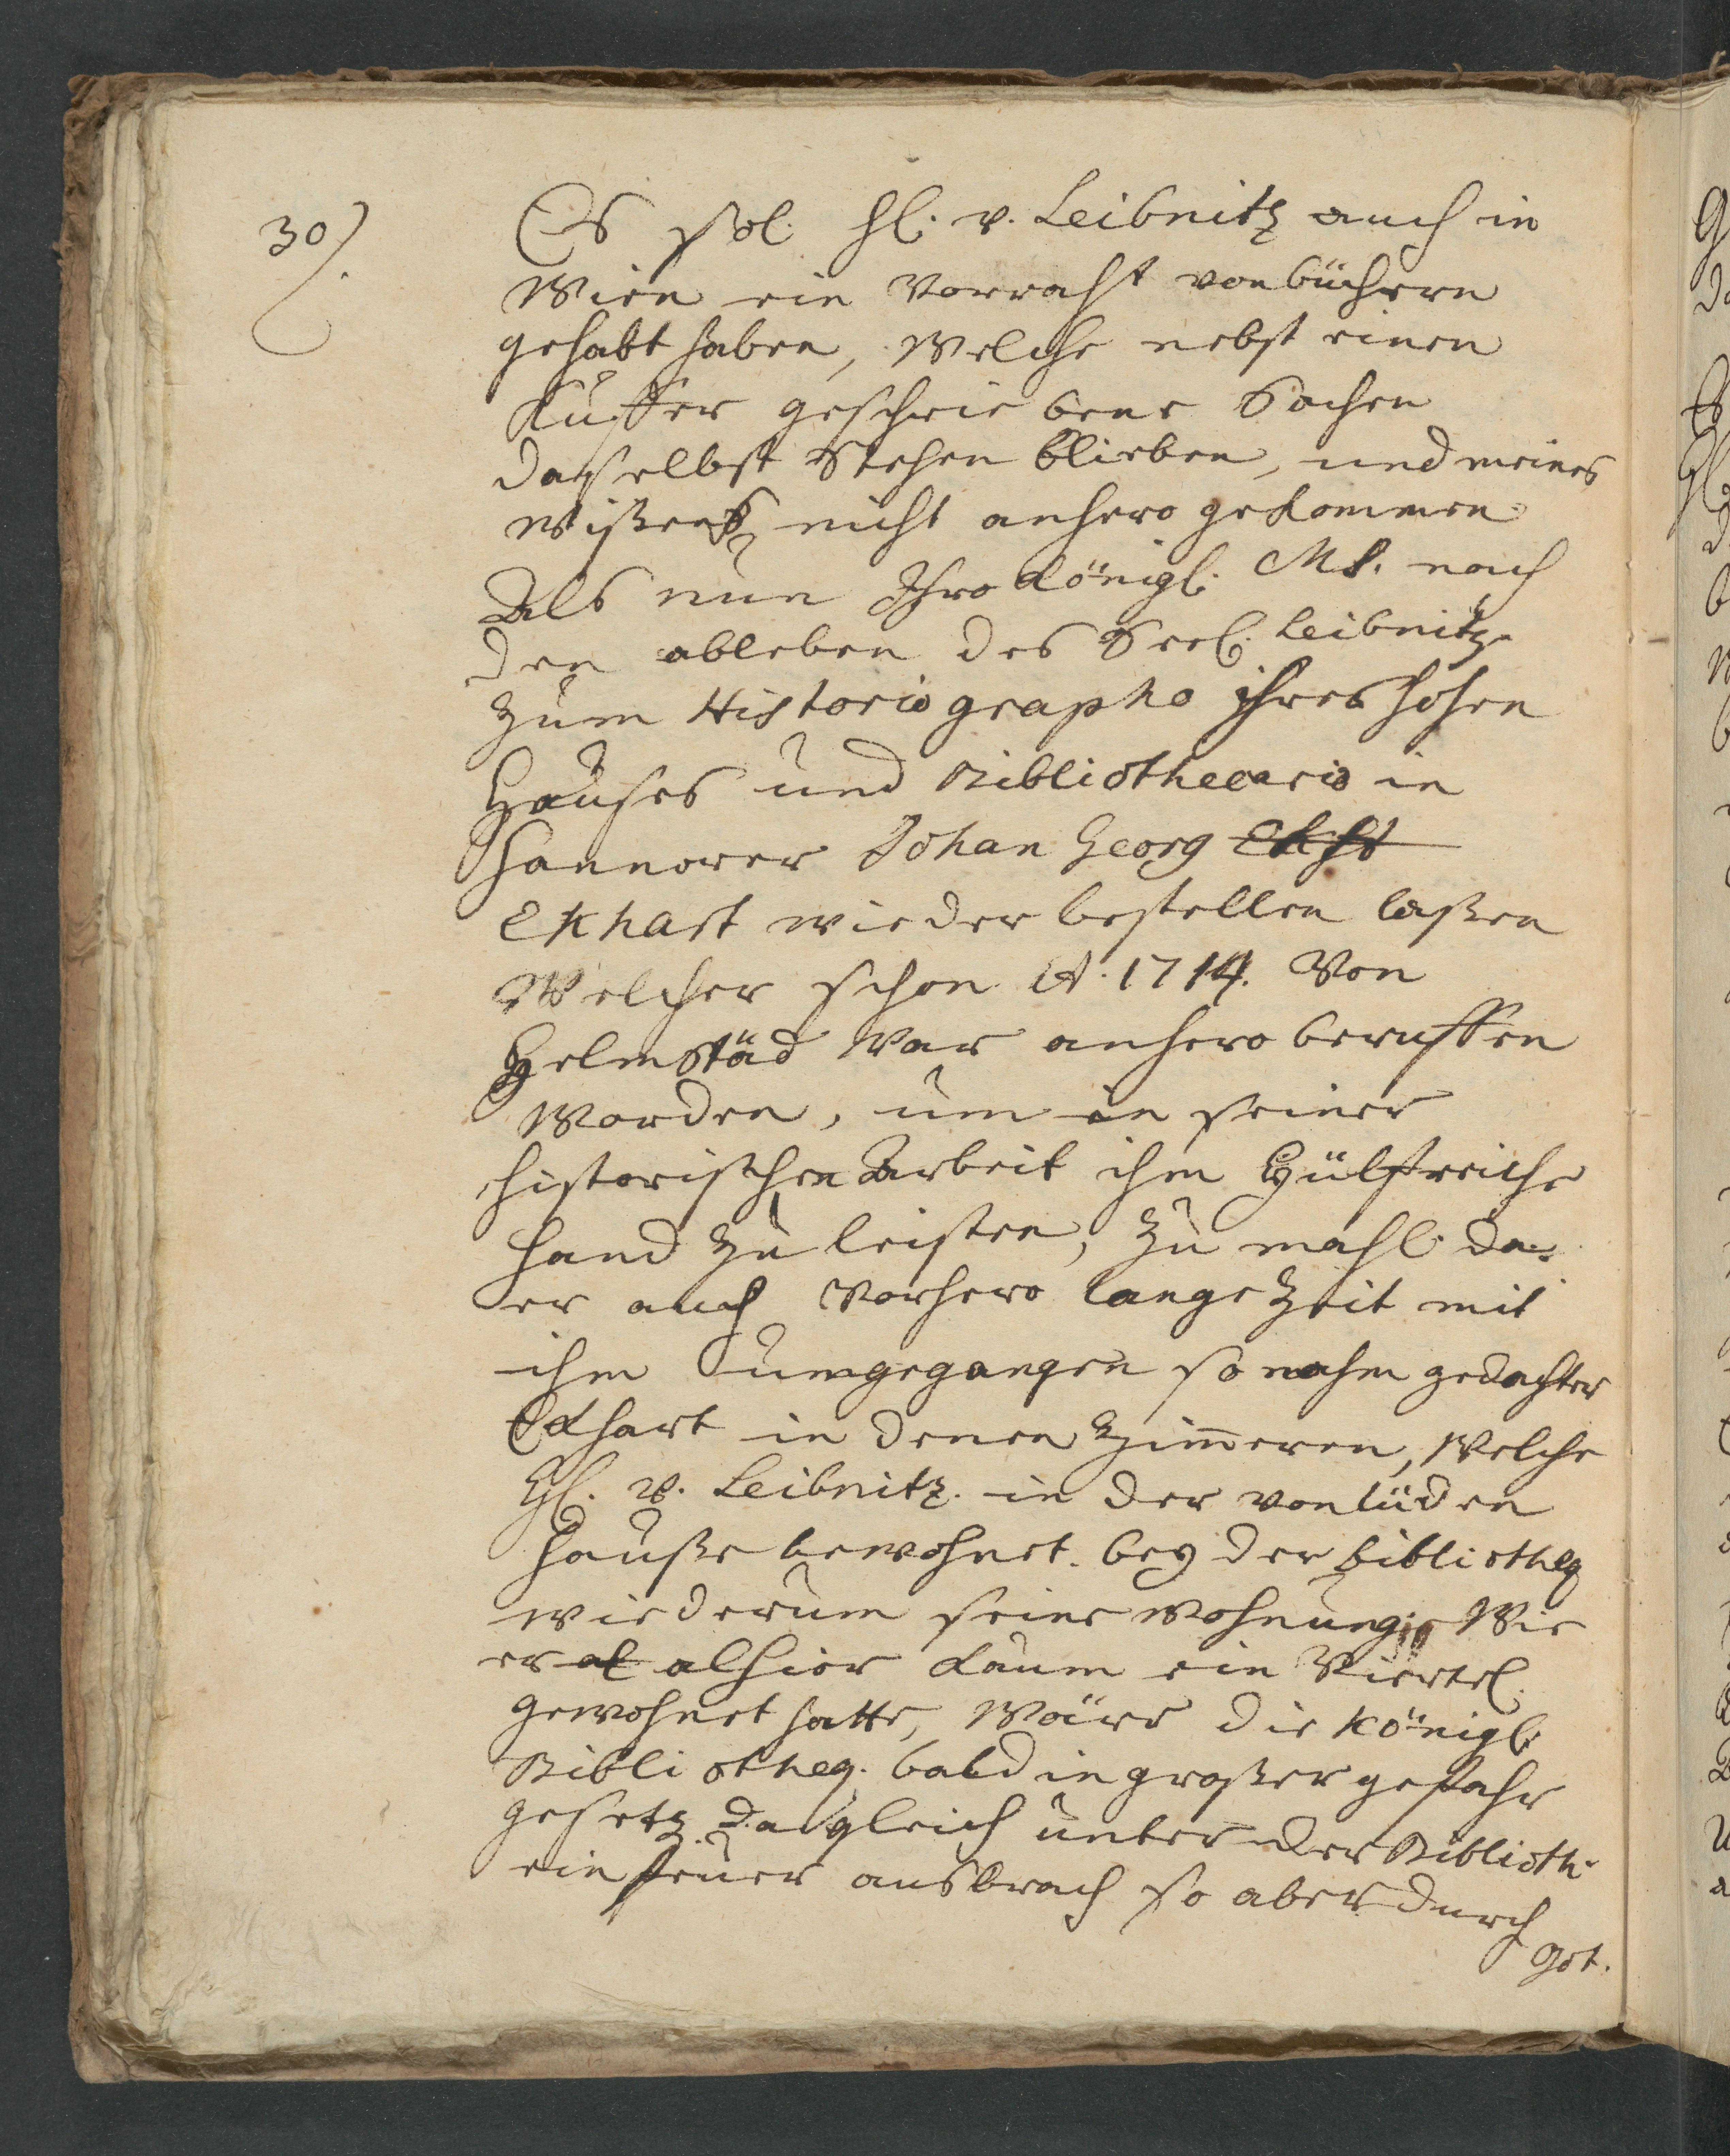 30).
Es sol. Hl. v. Leibnitz auch in
Wien ein Vorraht von büchern
gehabt haben, Welche nebst einen
Kuffer geschrie bene Sachen
daselbst Stehen blieben, und meines
Wißens nicht anhero gekommen.
Als nun Ihro Königl. Mt. nach
den ableben des Seel. Leibnitz
zum Historiographo ihres hohen
Hauses und Bibliothecario in
Hannover Johan Georg
Ekhart wieder bestellen laßen
Welcher schon A. 1714. Von
Helmstäd War anhero beruffen
Worden, um in seiner
historischen Arbeit ihm Hülfreiche
Hand zu leisten, zu mahl da
er auch Vorhero lange Zeit mit
ihm umgegangen so nahm gedachter
Eckhart in denen Zimmeren, Welche
Hl. v. Leibnitz. in der von lüden
Hauße bewohnet. bey der bibliotheq
wiederum seine Wohnung. Wie
er al alhier kaum ein Viertel.
gewohnet hatte, Wäre die Königl.
Bibliotheq. bald in großer gefahr
gesetz. da gleich unter der Biblioth.
ein feuer ausbrach so aber durch
Got.